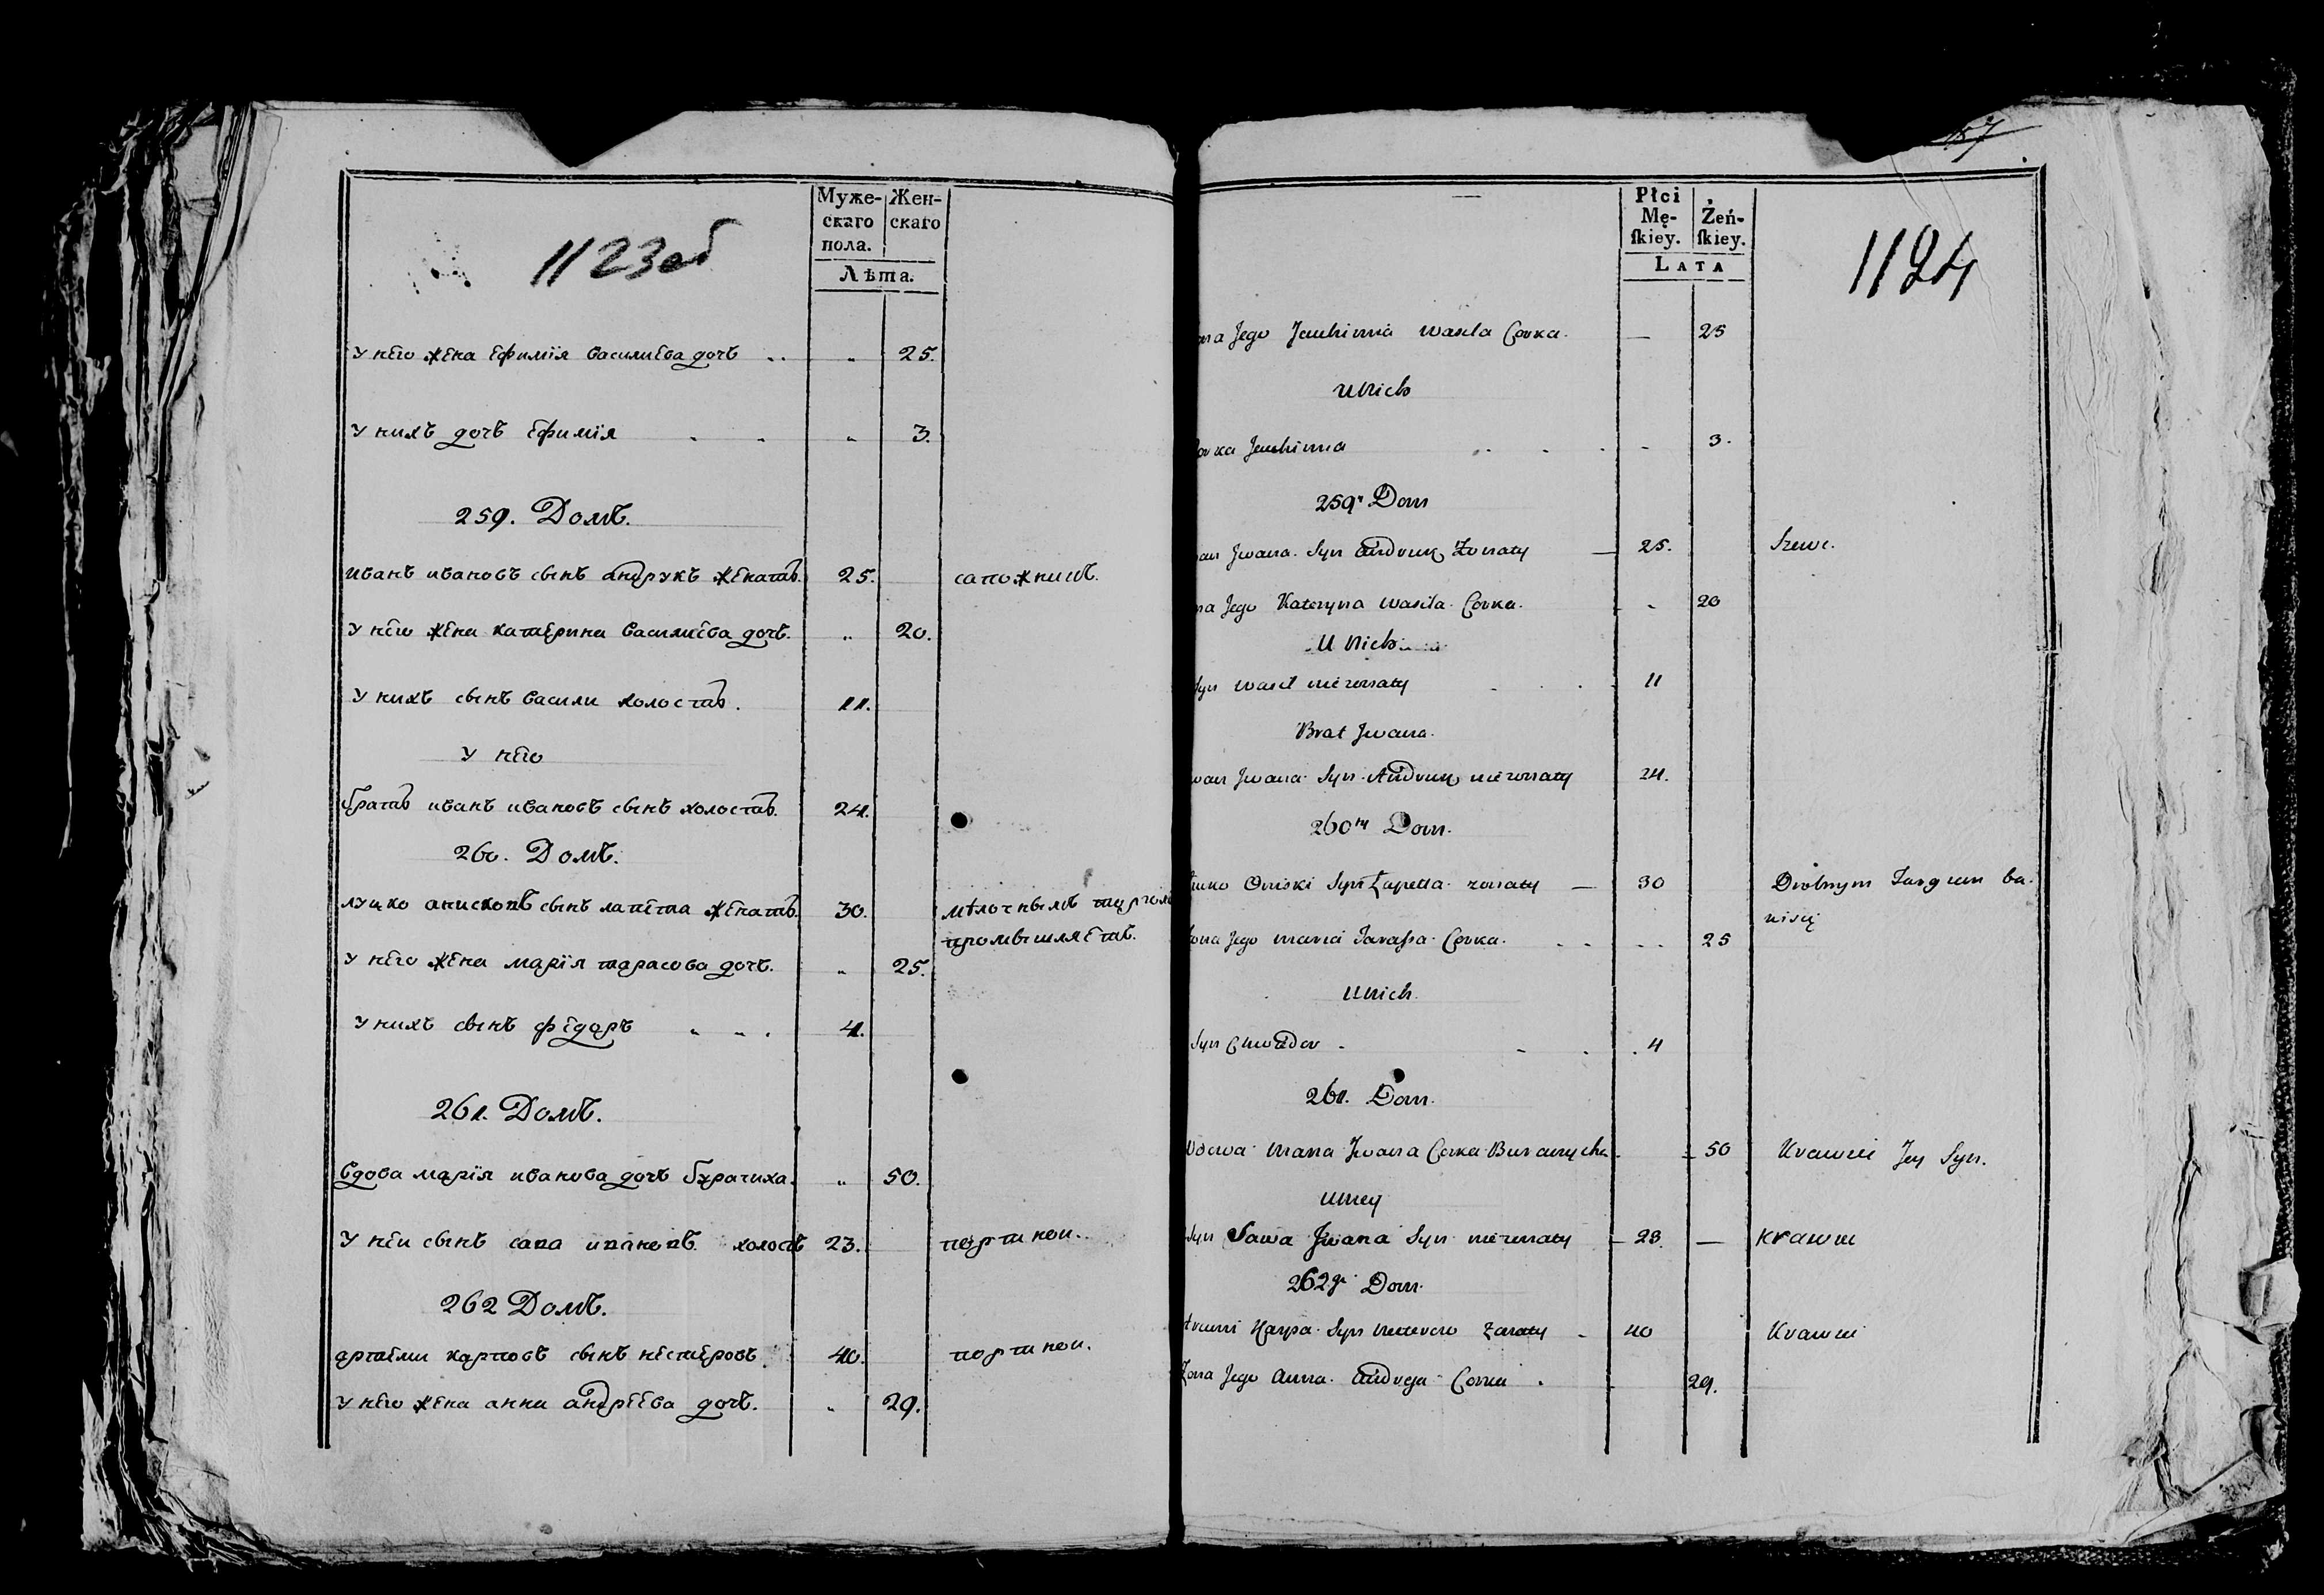 Муже-
скаго
пола.
Жен-
скаго
Лѣта.
1123об
У него жена Ефимїя василиева дочь .. „ 25.
У нихъ дочь Ефимїя . . „ 3.
259. Домъ.
иванъ ивановъ сынъ андрукъ женатъ. 25. сапожникъ.
У него жена катерина василиева дочь. „ 20.
У нихъ сынъ васили холостъ. 11.
У него
братъ иванъ ивановъ сынъ холостъ. 24.
260. Домъ.
луцко анисковъ сынъ лапета женатъ. 30. мѣлочнымъ торгомъ
промышляетъ.
У него жена марїя тарасова дочь. „ 25.
У нихъ сынъ федоръ . . . 4.
261. Домъ.
Вдова марїя иванова дочь бурачиха. „ 50.
У неи сынъ сава ивановъ холостъ 23. портнои.
262 Домъ.
артеми карповъ сынъ нестеровъ. 40. портнои.
У него жена анна андрѣева дочь. „ 29.
57
Płci
Mę-
skiey.
Żeń-
skiey.
Lata
1124
Jego Jewhinnia Wasila Corka. — 25
U Nich
Corka Jewhinnia . . . - 3.
259y Dom
Jwana Syn Andruk Zonaty — 25. Szewc.
Jego Kateryna Wasila Corka. - 20
U Nich
Syn Wasil niezonaty . . . 11
Brat Jwana.
Jwana Syn Andruk niezonaty 24.
260ty Dom.
Oniski Syn Łapetta zonaty — 30 Drobnym Targiem ba-
wisię
Zona Jego Maria Tarassa Corka. . . . . 25
U Nich.
Syn Chwedor - - . . 4
261. Dom.
Wdowa Maria Jwana Corka Buraczycha - - 50 Krawiec Jey Syn.
U niey
Syn Sawa Jwana Syn niezonaty - 23. — Krawiec
262gi Dom.
Karpa Syn Zonaty - 40 Krawiec
Zona Jego Anna Andreja Corka . 29.